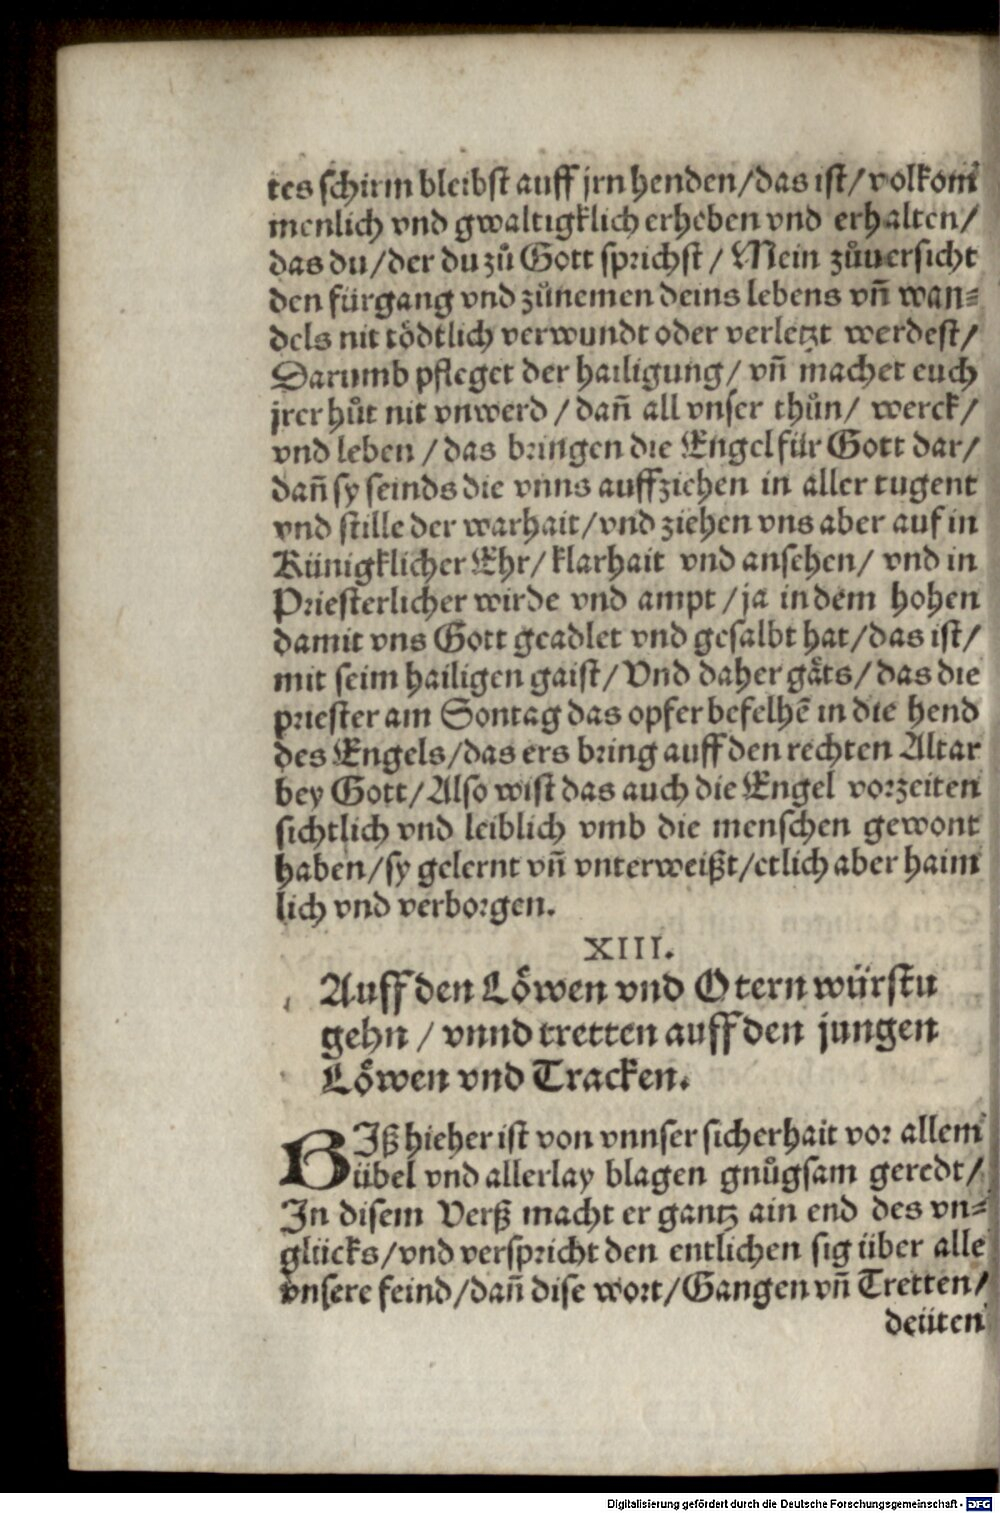 tes schirm bleibst auff jrn henden/das ist/volkom̃
menlich vnd gwaltigklich erheben vnd erhalten/
das du/der du zů Gott sprichst/Mein zůuersicht
den fürgang vnd zůnemen deins lebens vñ wan⸗
dels nit tödtlich verwundt oder verletzt werdest/
Darumb pfleget der hailigung/vñ machet euch
jrer hůt nit vnwerd/dañ all vnser thůn/werck/
vnd leben/das bringen die Engel für Gott dar/
dañ sy seinds die vnns auffziehen in aller tugent
vnd stille der warhait/vnd ziehen vns aber auf in
Künigklicher Ehr/klarhait vnd ansehen/vnd in
Priesterlicher wirde vnd ampt/ja in dem hohen
damit vns Gott geadlet vnd gesalbt hat/das ist/
mit seim hailigen gaist/Vnd daher gåts/das die
priester am Sontag das opfer befelhẽ in die hend
des Engels/das ers bring auff den rechten Altar
bey Gott/Also wist das auch die Engel vorzeiten
sichtlich vnd leiblich vmb die menschen gewont
haben/sy gelernt vñ vnterweißt/etlich aber haim
lich vnd verborgen.
XIII.
Auff den Löwen vnd Otern würstu
gehn/vnnd tretten auff den jungen
Löwen vnd Tracken.
BIß hieher ist von vnnser sicherhait vor allem
übel vnd allerlay blagen gnůgsam geredt/
In disem Verß macht er gantz ain end des vn⸗
glücks/vnd verspricht den entlichen sig über alle
vnsere feind/dañ dise wort/Gangen vñ Tretten/
deüten
Digitalisierung gefördert durch die Deutsche Forschungsgemeinschaft - DFG